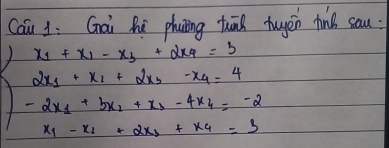 Câu 1: Giải hệ phương trình tuyến tính sau:
x₁ + x₂ - x₃ + 2x₄ = 3
2x₁ + x₂ + 2x₃ - x₄ = 4
- 2x₁ + 3x₂ + x₃ - 4x₄ = -2
x₁ - x₂ + 2x₃ + x₄ = 3